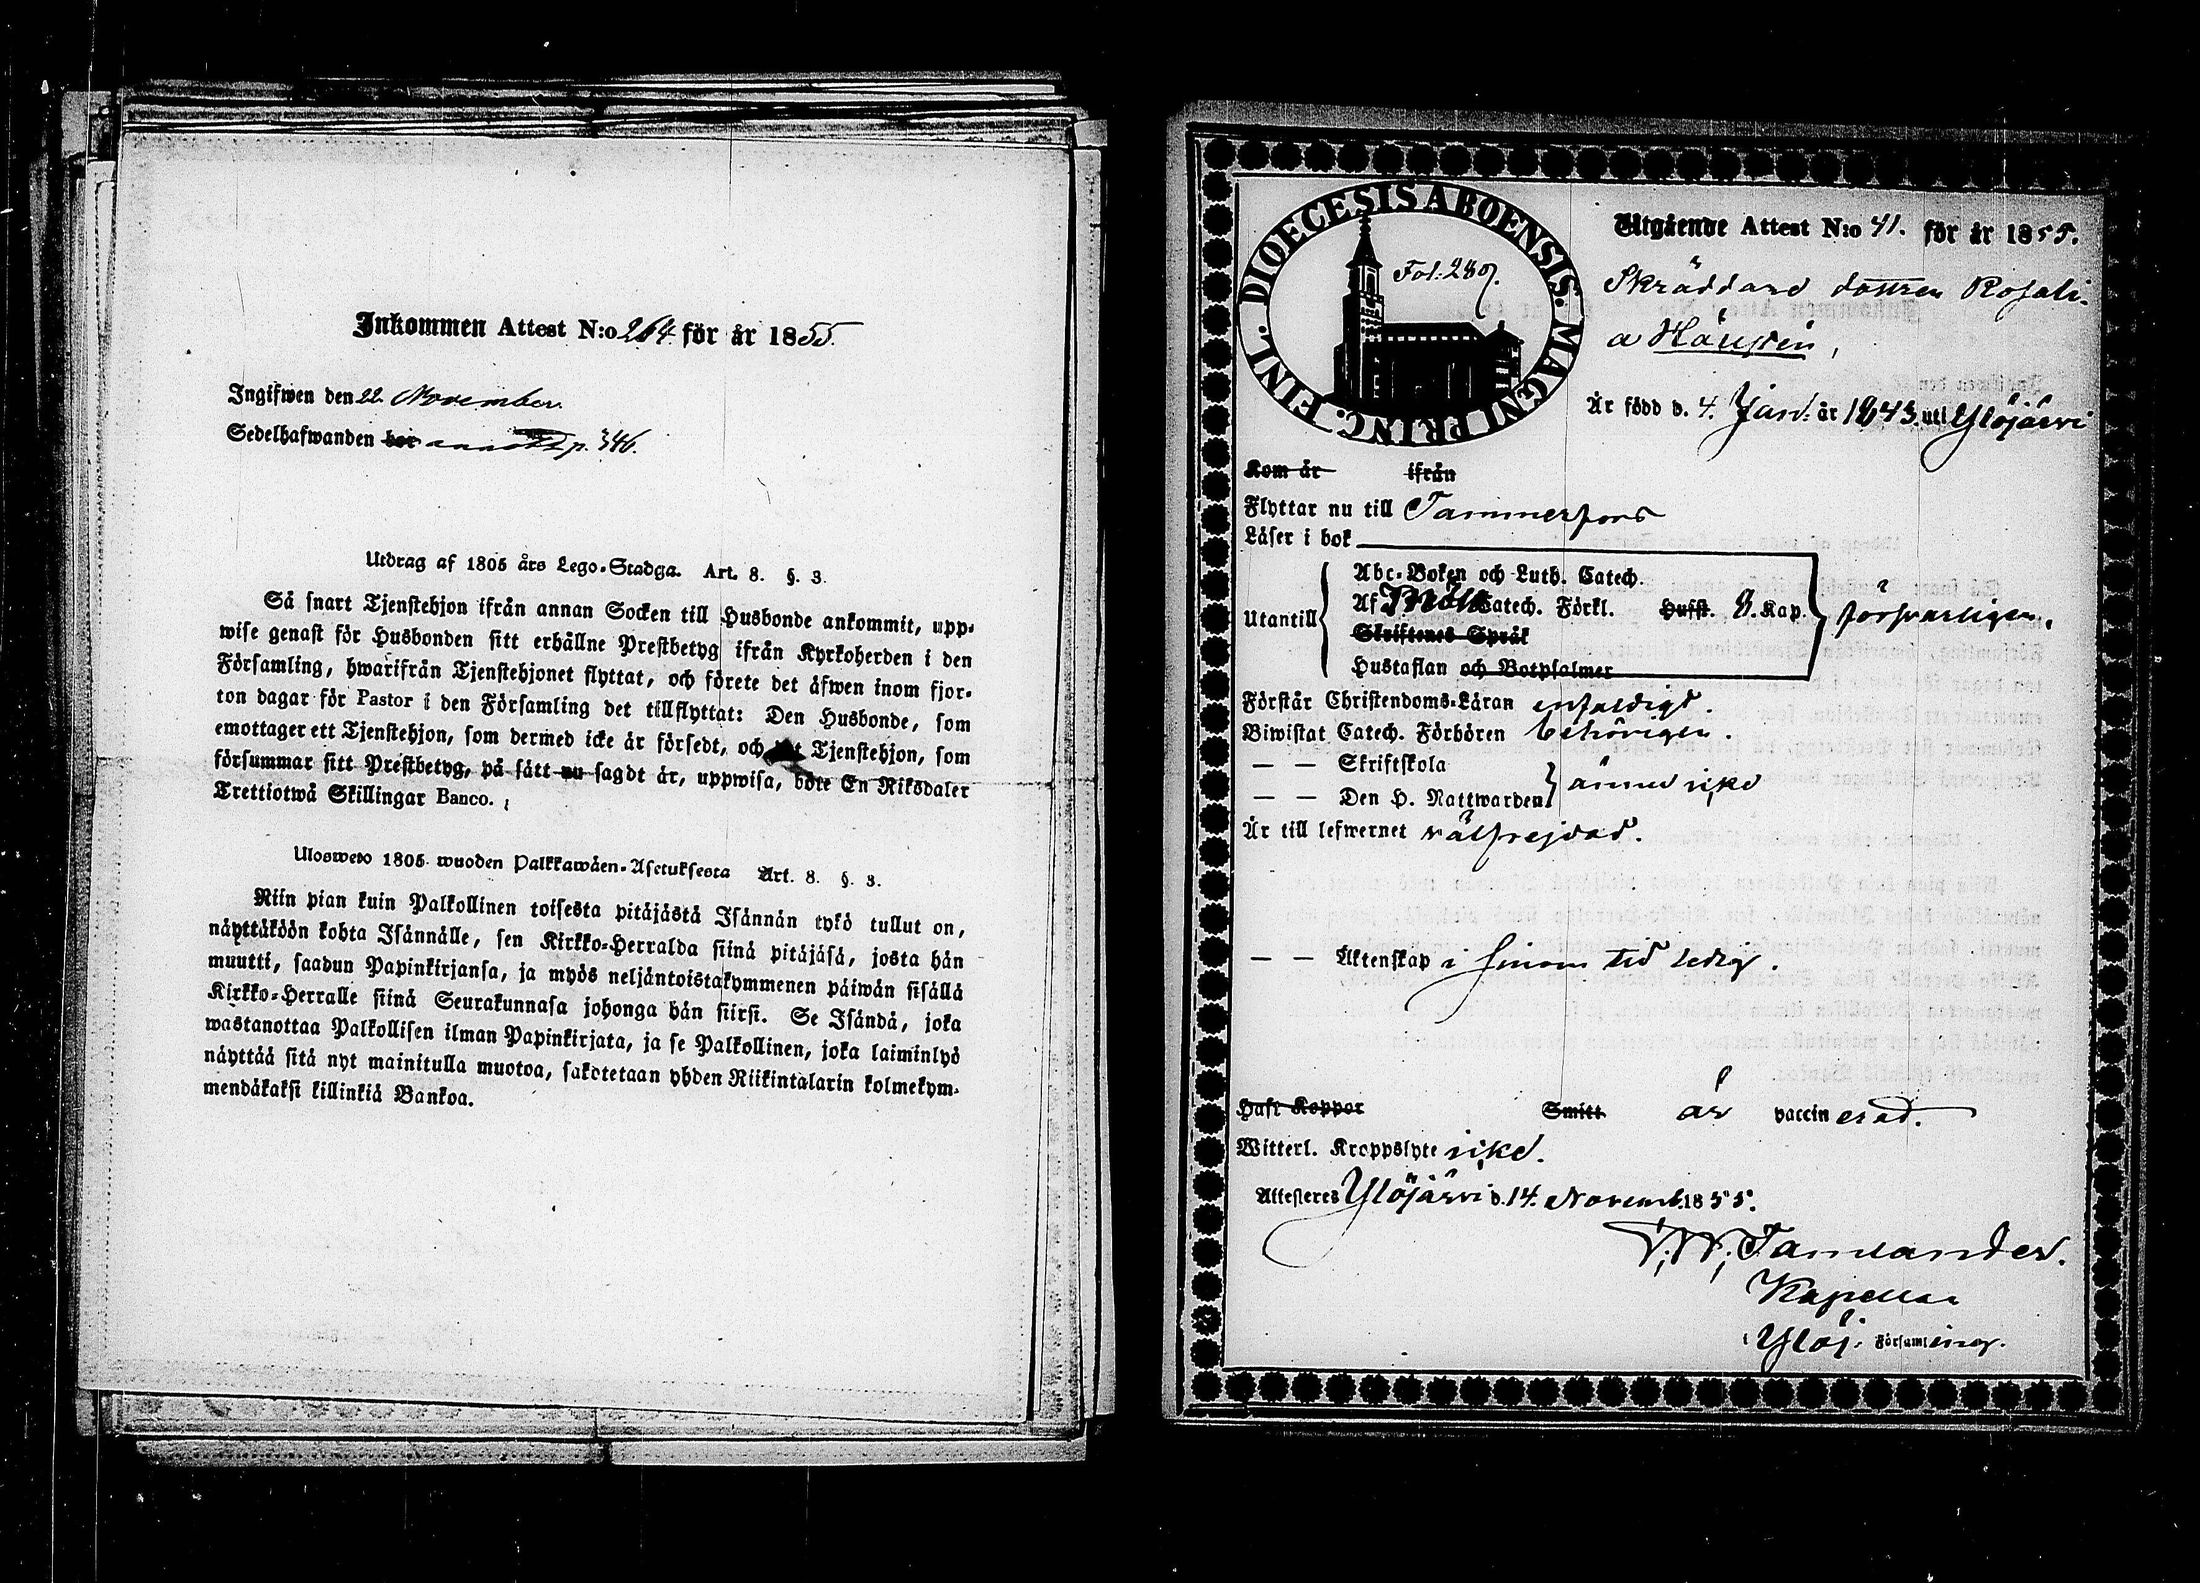 Inkommen Attest N:o 264 för år 1855.
Ingifwen den 22 November.
Sedelhafwanden bor p. 346.
Utdrag af 1805 års Lego-Stadga. Art. 8. §. 3.
Så snart Tjenstehjon ifrån annan Socken till Husbonde ankommit, upp-
wise genast för Husbonden sitt erhållne Prestbetyg ifrån Kyrkoherden i den
Församling, hwarifrån Tjenstehjonet flyttat, och förete det äfwen inom fjor-
ton dagar för Pastor i den Församling det tillflyttat: Den Husbonde, som
emottager ett Tjenstehjon, som dermed icke är försedt, och Tjenstehjon, som
försummar sitt Prestbetyg, på sätt nu sagdt är, uppwisa, böte En Riksdaler
Trettiotwå Skillingar Banco.
Ulosweto 1805 wuoden Palkkawäen-Asetuksesta Art. 8. §. 3.
Niin pian kuin Palkollinen toisesta pitäjästä Isännän tykö tullut on,
näyttäköön kohta Isännälle, sen Kirkko-Herralda siinä pitäjäsä, josta hän
muutti, saadun Papinkirjansa, ja myös neljäntoistakymmenen päiwän sisällä
Kirkko-Herralle siinä Seurakunnasa johonga hän siirsi. Se Isändä, joka
wastanottaa Palkollisen ilman Papinkirjata, ja se Palkollinen, joka laiminlyö
näyttää sitä nyt mainitulla muotoa, sakotetaan yhden Riikintalarin kolmekym-
mendäkaksi killinkiä Bankoa.
FINL. DIOECESIS ABOENSIS. MAGNI PRINC.
Fol. 280.
Utgående Attest N:o 41. för år 1855.
Skräddare dottren Rosali-
a
Är född d. 4. Jan. år 1843. uti Ylöjärvi
Kom år ifrån
Flyttar nu till Tammerfors
Läser i bok
Utantill
Abc-Boken och Luth. Catech.
Af Catech. Förkl. Hufst. Kap.
försvarligen.
Skriftenes Språk
Hustaflan och Botpsalmer
Förstår Christendoms-Läran enfaldigt.
Biwistat Catech. Förhören behörigen.
— — Skriftskola
— — Den H. Nattwarden ännu icke
Är till lefwernet välfrejdad.
— — Äktenskap i sinom tid ledig.
Haft Koppor Smitt är vaccinerad.
Witterl. Kroppslyte icke.
Attesteres Ylöjärvi d. 14. Novemb. 1855.
Kapellan
i Ylöj. Församling.